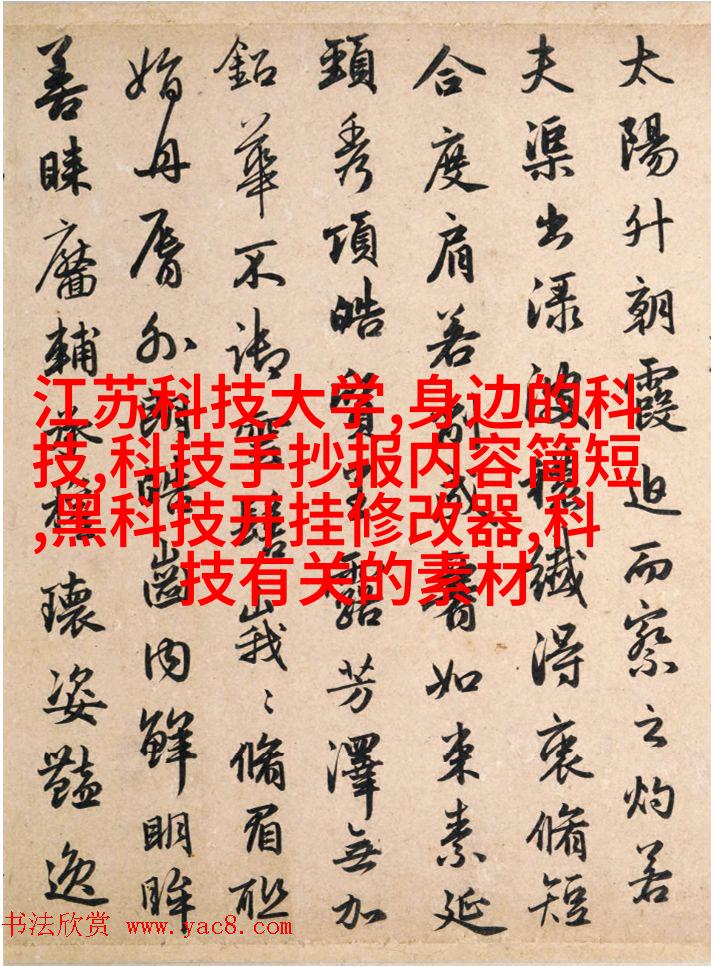 太陽升朝霞迫而察之灼若
夫渠出淥波穠纖得衷脩短
合度肩若削成如束素延
頸秀項皓質呈露芳澤無加
鉛華不御雲髻峩〻脩眉聯
娟丹脣外朗皓齒内鮮明眸
善睞靨輔承權瓌姿豔逸
江苏科技大学,身边的科
技,科技手抄报内容简短
,黑科技开挂修改器,科
技有关的素材
书法欣赏 www.yac8.com